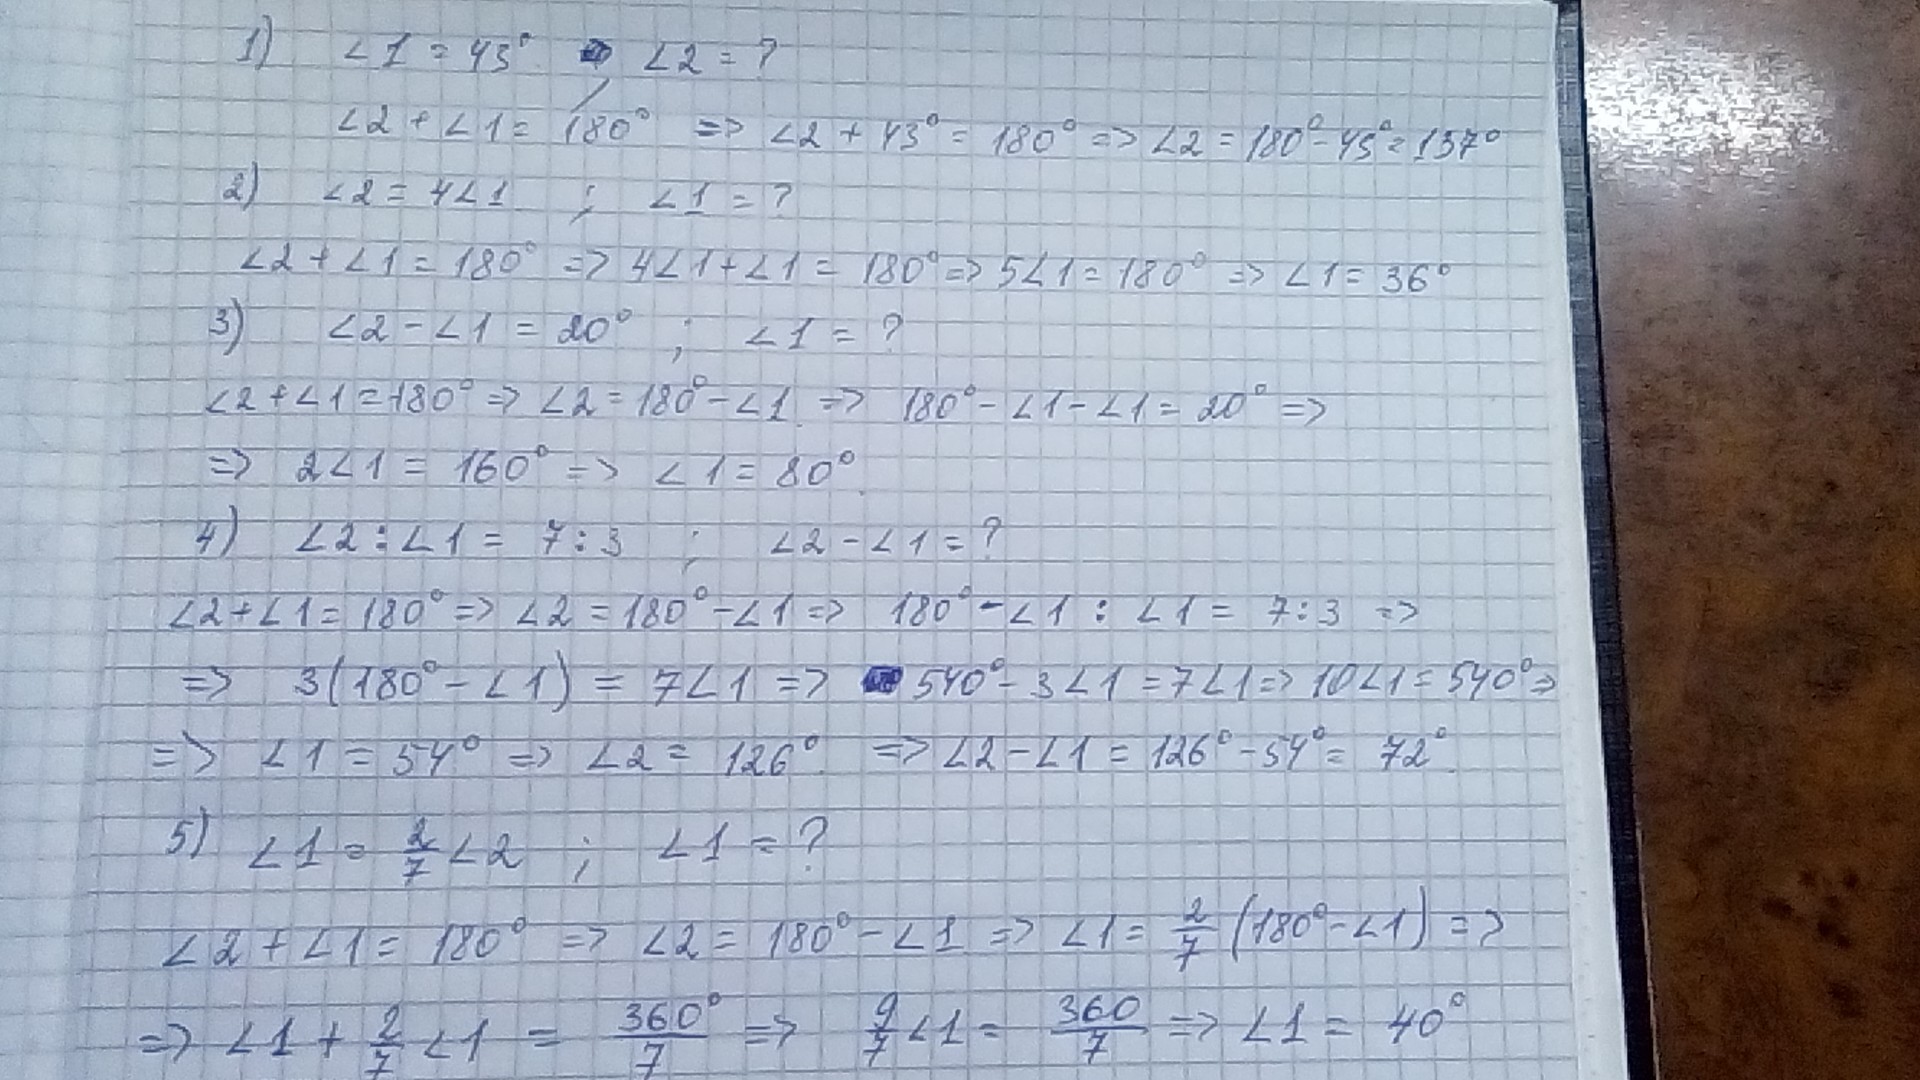 1) ∠1 = 43° ; ∠2 = ?
∠2 + ∠1 = 180° => ∠2 + 43° = 180° => ∠2 = 180° - 43° = 137°
2) ∠2 = 4∠1 ; ∠1 = ?
∠2 + ∠1 = 180° => 4∠1 + ∠1 = 180° => 5∠1 = 180° => ∠1 = 36°
3) ∠2 - ∠1 = 20° ; ∠1 = ?
∠2 + ∠1 = 180° => ∠2 = 180° - ∠1 => 180° - ∠1 - ∠1 = 20° =>
=> 2∠1 = 160° => ∠1 = 80°.
4) ∠2 : ∠1 = 7 : 3 ; ∠2 - ∠1 = ?
∠2 + ∠1 = 180° => ∠2 = 180° - ∠1 => 180° - ∠1 : ∠1 = 7 : 3 =>
=> 3(180° - ∠1) = 7∠1 => 540° - 3∠1 = 7∠1 => 10∠1 = 540° =>
=> ∠1 = 54° => ∠2 = 126°. => ∠2 - ∠1 = 126° - 54° = 72°.
5) ∠1 = 2/7 ∠2 ; ∠1 = ?
∠2 + ∠1 = 180° => ∠2 = 180° - ∠1 => ∠1 = 2/7 (180° - ∠1) =>
=> ∠1 + 2/7 ∠1 = 360°/7 => 9/7 ∠1 = 360/7 => ∠1 = 40°